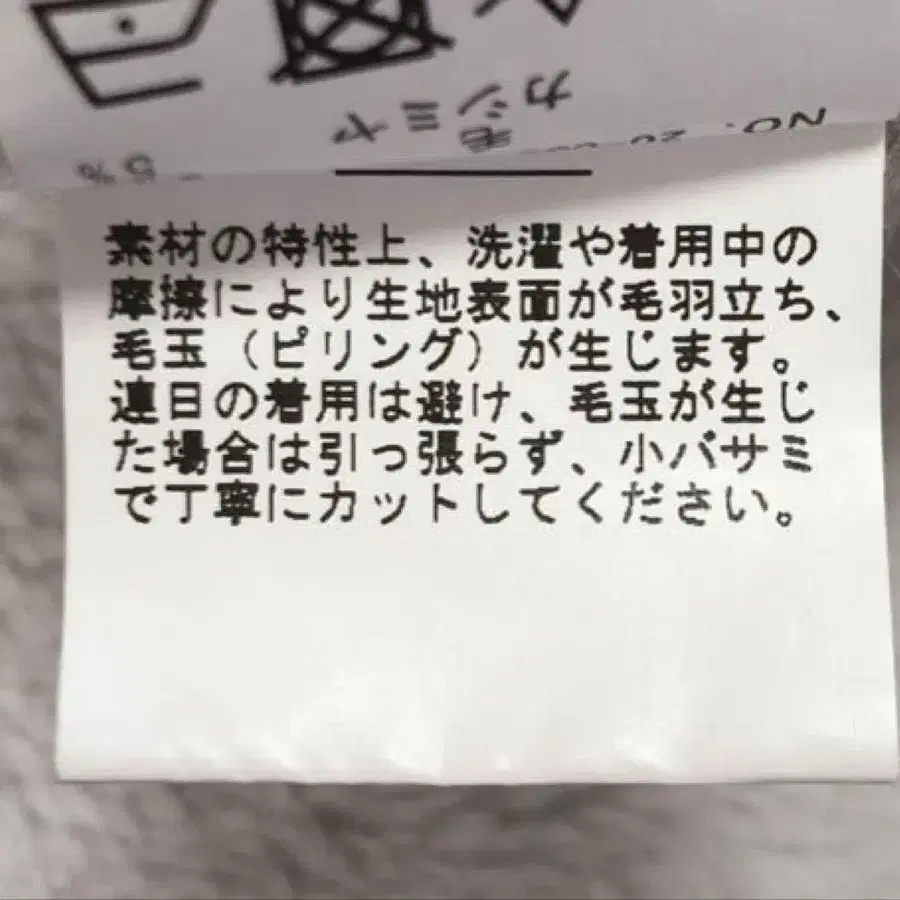 カシミヤ
毛
5%
NO. 20
素材の特性上、洗濯や着用中の
摩擦により生地表面が毛羽立ち、
毛玉（ピリング）が生じます。
連日の着用は避け、毛玉が生じ
た場合は引っ張らず、小バサミ
で丁寧にカットしてください。